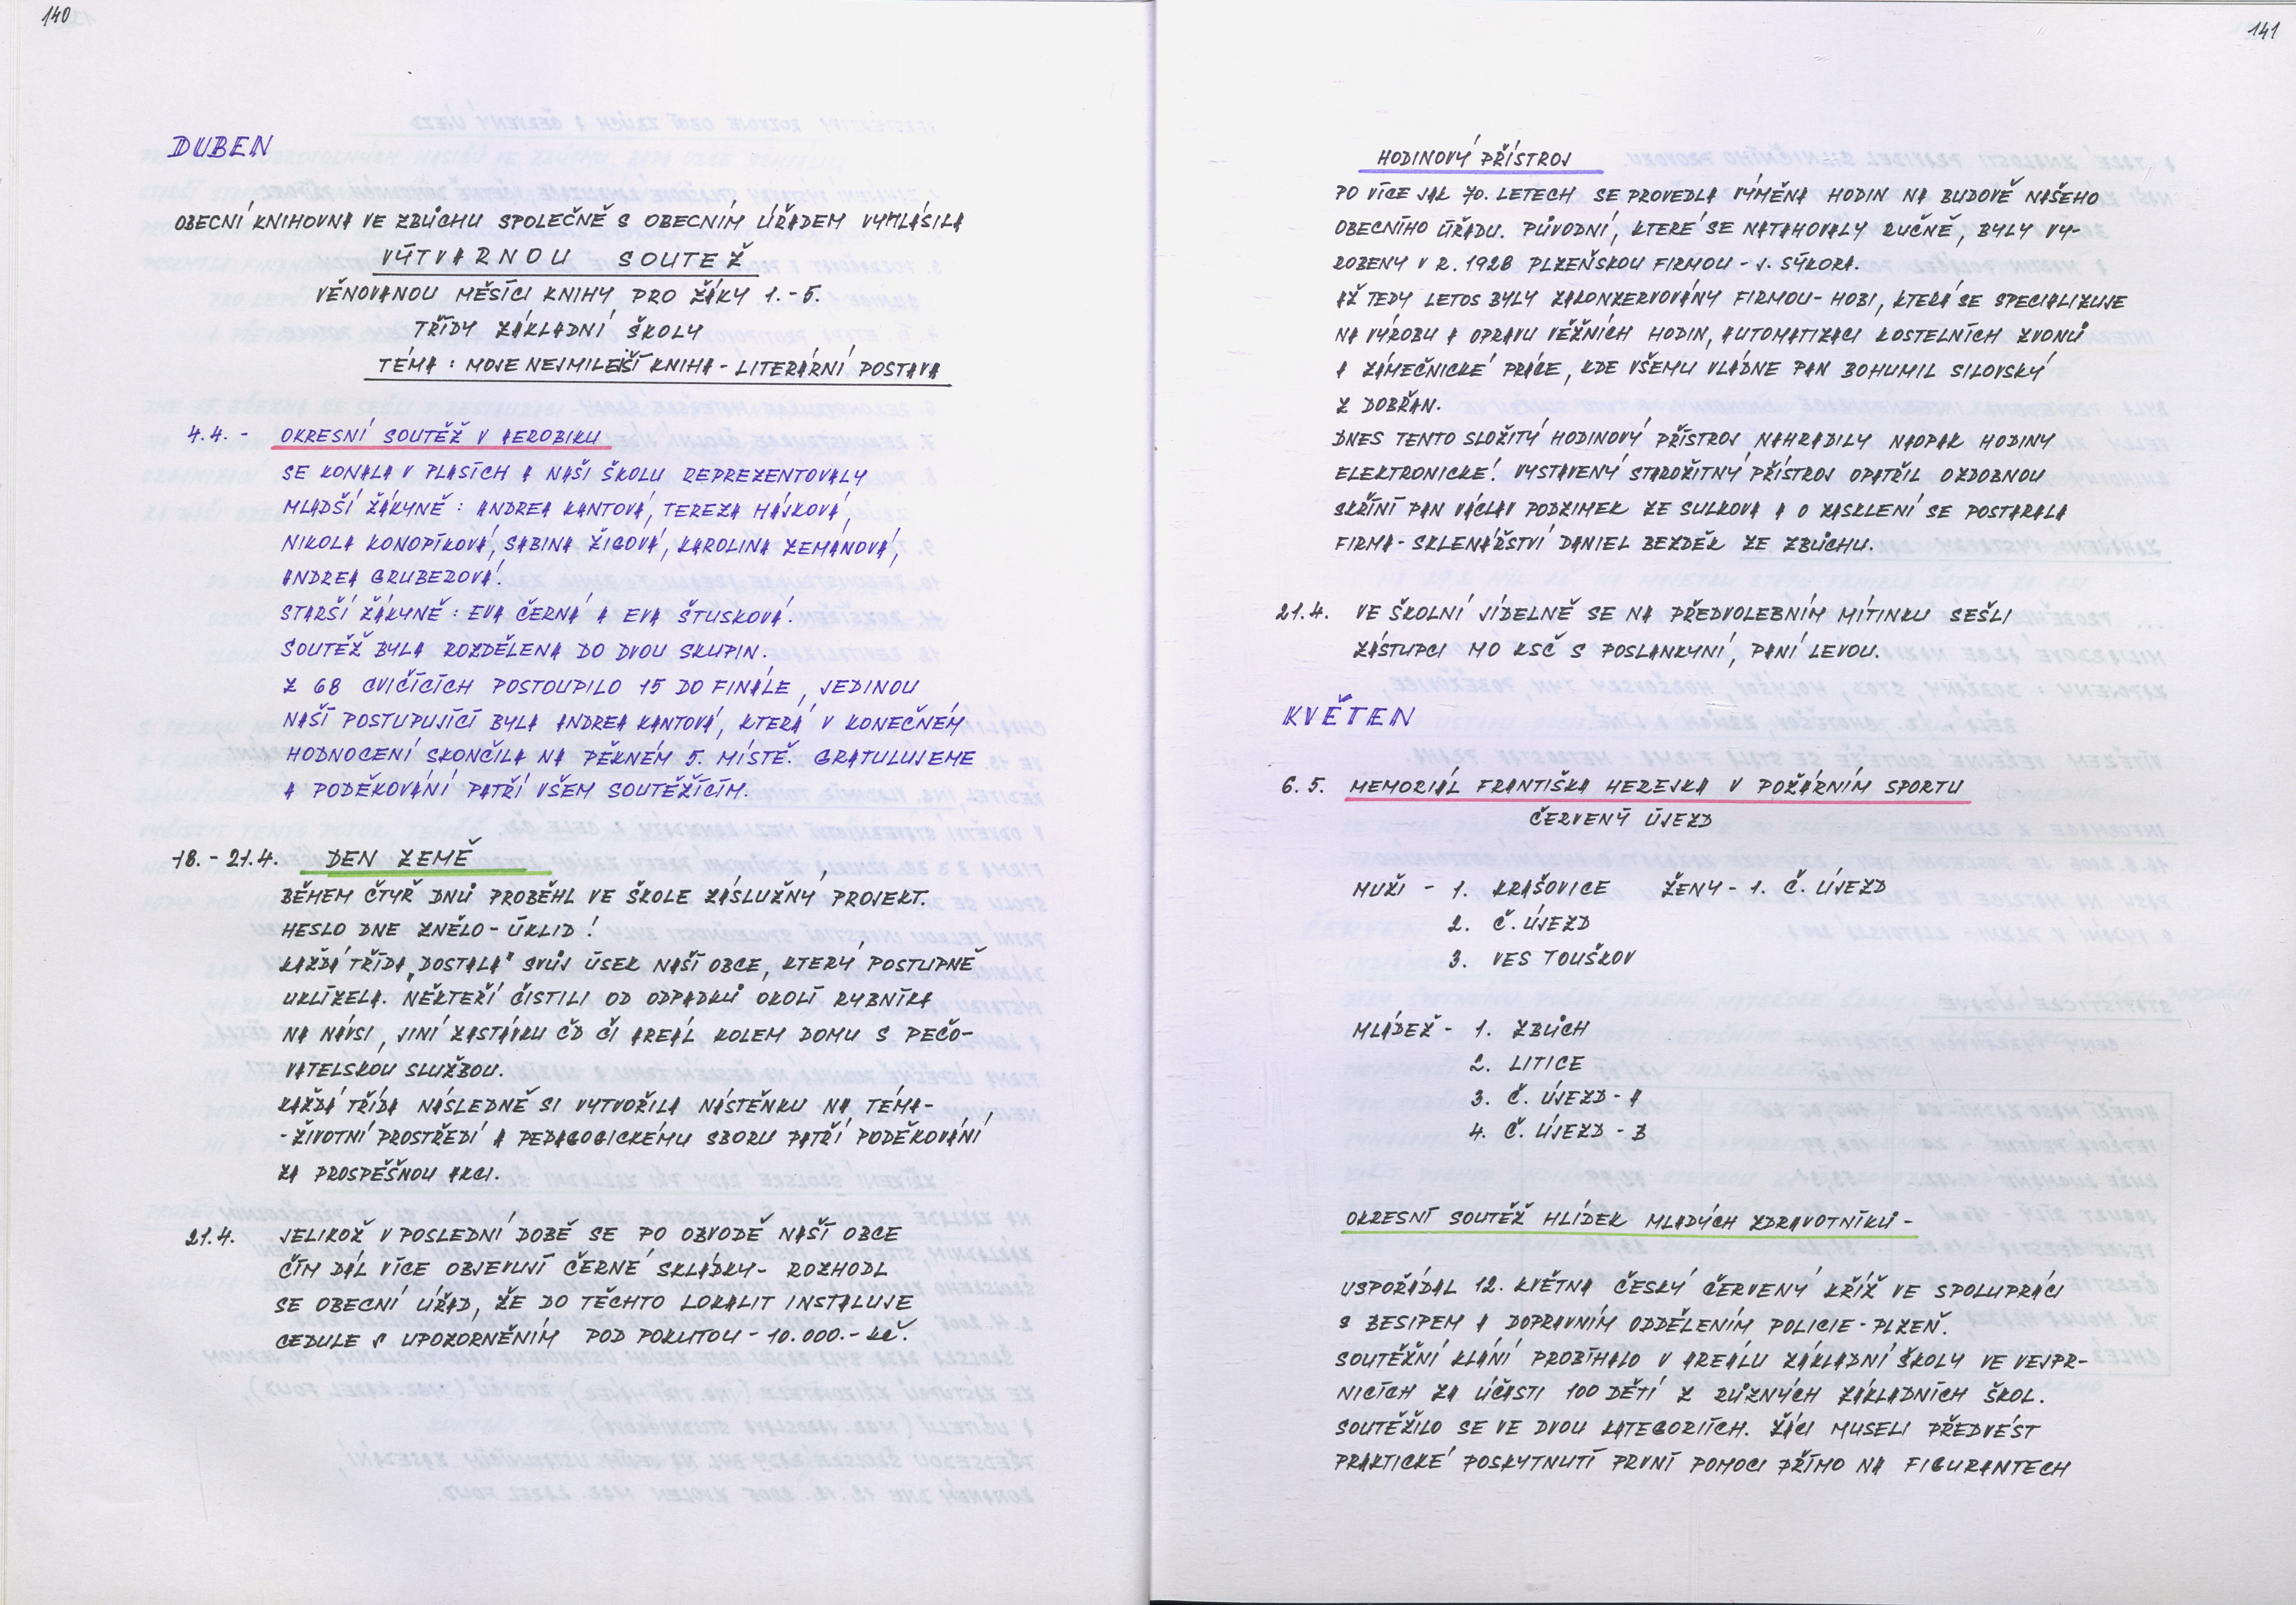 140
DUBEN
OBECNÍ KNIHOVNA VE ZBŮCHU SPOLEČNĚ S OBECNÍM ÚŘADEM VYHLÁSILA
VÝTVARNOU SOUTEŽ
VĚNOVANOU MĚSÍCI KNIHY PRO ŽÁKY 1.-5.
TŘÍDY ZÁKLADNÍ ŠKOLY
TÉMA : MOJE NEJMILEJŠÍ KNIHA - LITERÁRNÍ POSTAVA
4.4. - OKRESNÍ SOUTĚŽ V AEROBIKU
SE KONALA V PLASÍCH A NAŠI ŠKOLU REPREZENTOVALY
MLADŠÍ ŽÁKYNĚ : ANDREA KANTOVÁ, TEREZA HÁJKOVÁ,
NIKOLA KONOPÍKOVÁ, SABINA ŽIGOVÁ, KAROLINA ZEMANOVÁ,
ANDREA GRUBEROVÁ.
STARŠÍ ŽÁKYNĚ : EVA ČERNÁ A EVA ŠTUSKOVÁ.
SOUTĚŽ BYLA ROZDĚLENA DO DVOU SKUPIN.
Z 68 CVIČÍCÍCH POSTOUPILO 15 DO FINÁLE, JEDINOU
NAŠÍ POSTUPUJÍCÍ BYLA ANDREA KANTOVÁ, KTERÁ V KONEČNÉM
HODNOCENÍ SKONČILA NA PĚKNÉM 5. MÍSTĚ. GRATULUJEME
A PODĚKOVÁNÍ PATŘÍ VŠEM SOUTĚŽÍCÍM.
18. - 21.4. DEN ZEMĚ
BĚHEM ČTYŘ DNŮ PROBĚHL VE ŠKOLE ZÁSLUŽNÝ PROJEKT.
HESLO DNE ZNĚLO - ÚKLID !
KAŽDÁ TŘÍDA „DOSTALA" SVŮJ ÚSEK NAŠÍ OBCE, KTERÝ POSTUPNĚ
UKLÍZELA. NĚKTEŘÍ ČISTILI OD ODPADKŮ OKOLÍ RYBNÍKA
NA NÁVSI, JINÍ ZASTÁVKU ČD ČI AREÁL KOLEM DOMU S PEČO-
VATELSKOU SLUŽBOU.
KAŽDÁ TŘÍDA NÁSLEDNĚ SI VYTVOŘILA NÁSTĚNKU NA TÉMA-
- ŽIVOTNÍ PROSTŘEDÍ A PEDAGOGICKÉMU SBORU PATŘÍ PODĚKOVÁNÍ
ZA PROSPĚŠNOU AKCI.
21.4. JELIKOŽ V POSLEDNÍ DOBĚ SE PO OBVODĚ NAŠÍ OBCE
ČÍM DÁL VÍCE OBJEVUJÍ ČERNÉ SKLÁDKY - ROZHODL
SE OBECNÍ ÚŘAD, ŽE DO TĚCHTO LOKALIT INSTALUJE
CEDULE S UPOZORNĚNÍM POD POKUTOU - 10.000.- Kč.
141
HODINOVÝ PŘÍSTROJ
PO VÍCE JAK 70. LETECH SE PROVEDLA VÝMĚNA HODIN NA BUDOVĚ NAŠEHO
OBECNÍHO ÚŘADU. PŮVODNÍ, KTERÉ SE NATAHOVALY RUČNĚ, BYLY VY-
ROBENY V R. 1928 PLZEŇSKOU FIRMOU - J. SÝKORA.
AŽ TEDY LETOS BYLY ZAKONZERVOVÁNY FIRMOU - HOBI, KTERÁ SE SPECIALIZUJE
NA VÝROBU A OPRAVU VĚŽNÍCH HODIN, AUTOMATIZACI KOSTELNÍCH ZVONŮ
A ZÁMEČNICKÉ PRÁCE, KDE VŠEMU VLÁDNE PAN BOHUMIL SILOVSKÝ
Z DOBŘAN.
DNES TENTO SLOŽITÝ HODINOVÝ PŘÍSTROJ NAHRADILY NAOPAK HODINY
ELEKTRONICKÉ. VYSTAVENÝ STAROŽITNÝ PŘÍSTROJ OPATŘIL OZDOBNOU
SKŘÍNÍ PAN VÁCLAV PODZIMEK ZE SULKOVA A O ZASKLENÍ SE POSTARALA
FIRMA - SKLENÁŘSTVÍ DANIEL BEZDĚK ZE ZBŮCHU.
21.4. VE ŠKOLNÍ JÍDELNĚ SE NA PŘEDVOLEBNÍM MÍTINKU SEŠLI
ZÁSTUPCI MO KSČ S POSLANKYNÍ, PANÍ LEVOU.
KVĚTEN
6.5. MEMORIÁL FRANTIŠKA HEREJKA V POŽÁRNÍM SPORTU
ČERVENÝ ÚJEZD
MUŽI - 1. KRAŠOVICE ŽENY - 1. Č. ÚJEZD
2. Č. ÚJEZD
3. VES TOUŠKOV
MLÁDEŽ - 1. ZBŮCH
2. LITICE
3. Č. ÚJEZD - A
4. Č. ÚJEZD - B
OKRESNÍ SOUTĚŽ HLÍDEK MLADÝCH ZDRAVOTNÍKŮ -
USPOŘÁDAL 12. KVĚTNA ČESKÝ ČERVENÝ KŘÍŽ VE SPOLUPRÁCI
S BESIPEM A DOPRAVNÍM ODDĚLENÍM POLICIE - PLZEŇ.
SOUTĚŽNÍ KLÁNÍ PROBÍHALO V AREÁLU ZÁKLADNÍ ŠKOLY VE VEJPR-
NICÍCH ZA ÚČASTI 100 DĚTÍ Z RŮZNÝCH ZÁKLADNÍCH ŠKOL.
SOUTĚŽILO SE VE DVOU KATEGORIÍCH. ŽÁCI MUSELI PŘEDVÉST
PRAKTICKÉ POSKYTNUTÍ PRVNÍ POMOCI PŘÍMO NA FIGURANTECH